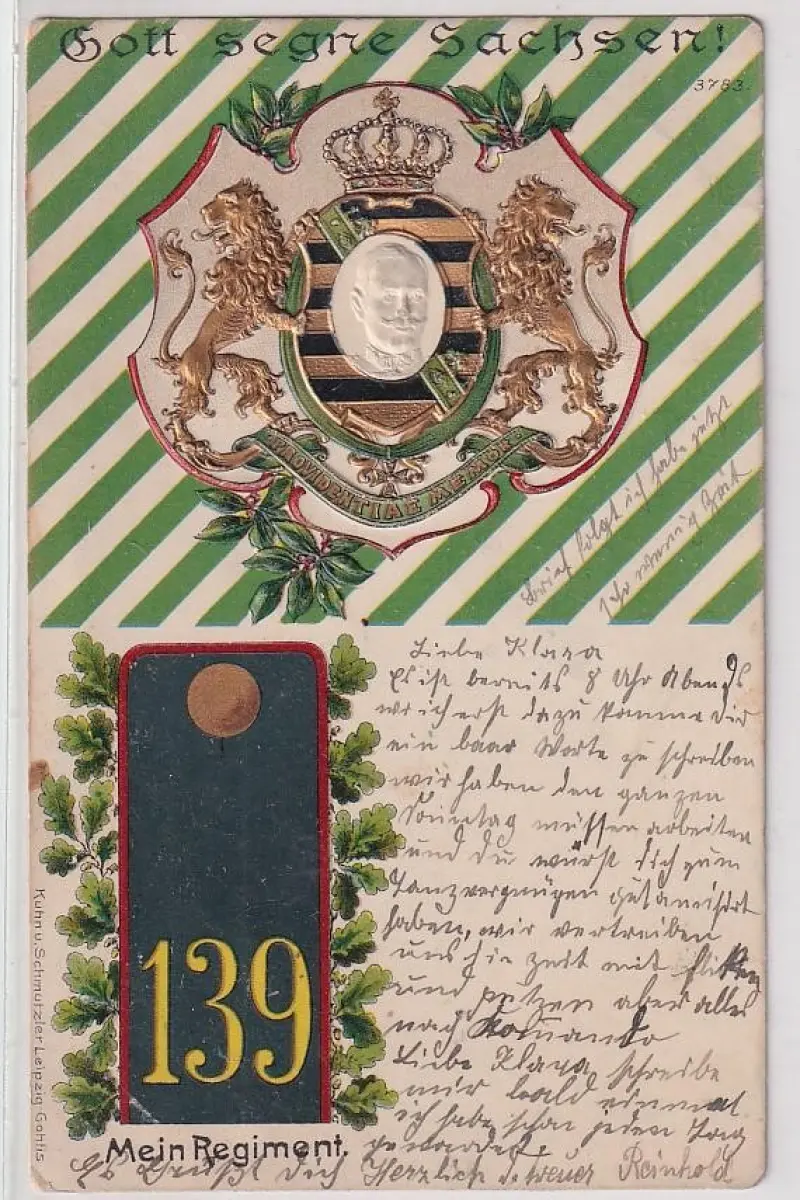 Gott segne Sachsen!
3783.
PROVIDENTIAE MEMOR
Brief folgt ich habe jetzt
sehr wenig Zeit
139
Mein Regiment.
Kuhn u. Schmutzler Leipzig Gohlis
Liebe Klara
Es ist bereits 8 Uhr Abends
wo ich erst dazu komme dir
ein baar Worte zu schreiben
wir haben den ganzen
Sonntag müssen arbeiten
und du würst dich zum
Tanzvergnügen gut amisirt
haben, wir vertreiben
uns die zeit mit fliken
und putzen aber alles
nach Komando
Liebe Klara schreibe
mir bald einmal
ich habe schon jeden Tag
gewartet.
Es Grüßt dich Herzlich d. treuer Reinhold